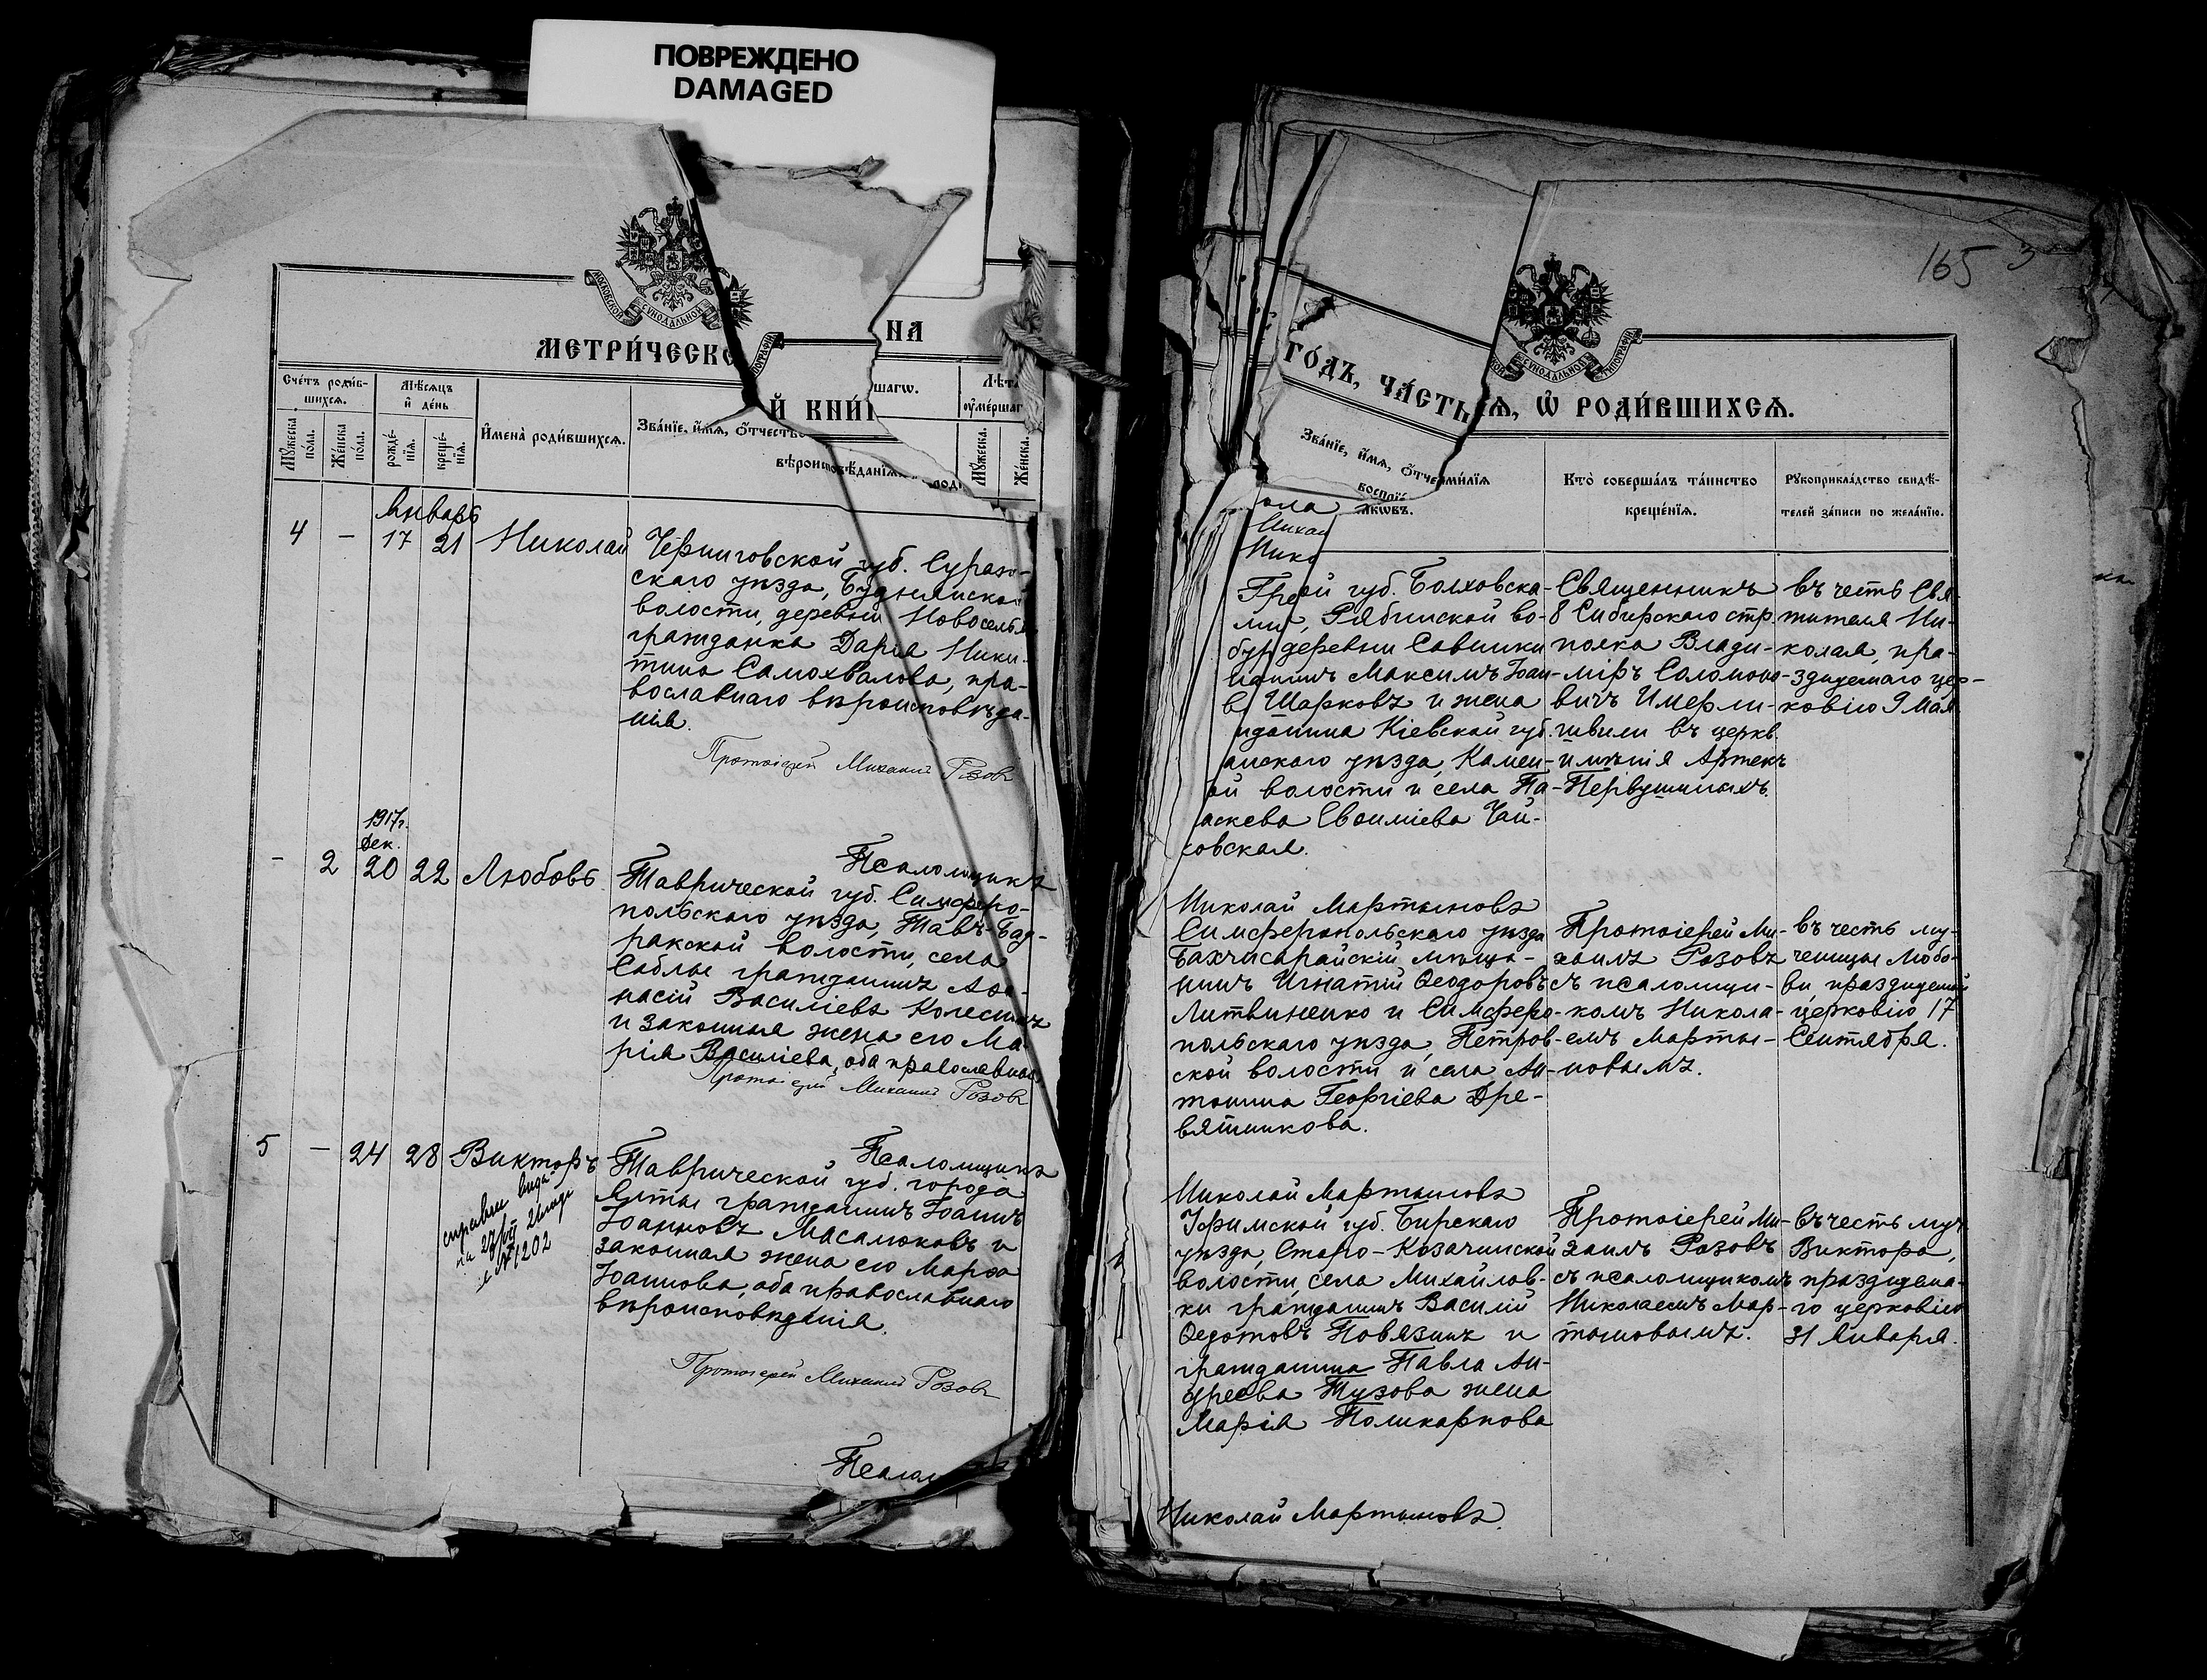 ПОВРЕЖДЕНО
DAMAGED
МОСКОВСКОЙ СѴНОДАЛЬНОЙ
МЕТРИ́ЧЕСКО
Й КНИ́Г
НА
Сче́тъ роди́в-
шихсѧ.
Мѣ́сѧцъ
и҆ де́нь
Мꙋ́жеска по́ла.
Же́нска по́ла.
рожде́-
нїѧ.
креще́-
нїѧ.
И҆мена̀ роди́вшихсѧ.
Зва́нїе, и҆́мѧ, ѻ҆́тчество
вѣроисповѣ́данїѧ
шагѡ.
Лѣ́та
ᲂу҆ме́ршаг
Мꙋ́жеска.
Же́нска.
Январь
4 - 17 21 Николай
Черниговской губ. Сураж-
скаго уѣзда,
волости, деревни Новоселье
гражданка Дарія Ники-
тина Самохвалова, пра-
вославнаго вѣроисповѣда-
нія.
Протоіерей Михаилъ Розовъ
Псаломщикъ
1917г.
Дек.
- 2 20 22 Любовь
Таврической губ. Симферо-
польскаго уѣзда, Тавъ-Бад-
ракской волости, села
Саблы гражданинъ Аѳа-
насій Василіевъ Колесникъ
и законная жена его Ма-
рія Василіева, оба православные
Протоіерей Михаилъ Розовъ
Псаломщикъ
5 - 24 28 Викторъ
на
№ 1202
Таврической губ. города
Ялты гражданинъ Іоаннъ
Іоанновъ Масалюковъ и
законная жена его Марѳа
Іоаннова, оба православнаго
вѣроисповѣданія.
Протоіерей Михаилъ Розовъ
Псалом
165
3
ГО́ДЪ, ЧА́СТЬ
Ѧ, Ѡ҆ РОДИ́ВШИХСѦ.
Зва́нїе, и҆́мѧ, ѻ҆́тче
ми́лїѧ
воспрїе́
ѧ́кѡвъ.
Кто̀ соверша́лъ та́инство
креще́нїѧ.
Рꙋкоприкла́дство свидѣ́-
телей за́писи по жела́нїю.
ола
Михаи
Нико
ой губ. Болховска-
, Рябинской во-
деревни Савинки
Максимъ Іоан-
в Шарковъ и жена
Кіевской губ.
анскаго уѣзда, Камен-
ой волости и села Па-
аскева Евѳиміева Чай-
ковская.
Священникъ
8 Сибирскаго стр.
полка Влади-
міръ Соломоно-
вичъ Имерли-
швили въ церкв.
имѣнія Артекъ
Первушиныхъ.
въ честь Свя-
тителя Ни-
колая, пра-
зднуемаго цер-
ковію 9 Мая
Николай Мартыновъ
Симферопольскаго уѣзда
Бахчисарайскій мѣща-
нинъ Игнатій Ѳеодоровъ
Литвиненко и Симферо-
польскаго уѣзда, Петров-
ской волости и села Ан-
тонина Георгіева Дре-
вятникова.
Протоіерей Ми-
хаилъ Розовъ
съ псаломщи-
комъ Никола-
емъ Марты-
новымъ.
въ честь му-
ченицы Любо-
ви, празднуемой
церковію 17
Сентября.
Николай Мартыновъ
Уфимской губ. Бирскаго
уѣзда, Старо-Козачинской
волости, села Михайлов-
ки гражданинъ Василій
Ѳедотовъ Повязинъ и
гражданина Павла Ан-
дреева Тузова жена
Марія Поликарпова
Протоіерей Ми-
хаилъ Розовъ
съ псаломщикомъ
Николаемъ Мар-
тыновымъ.
въ честь муч.
Виктора,
празднуема-
го церковію
31 Января.
Николай Мартыновъ.